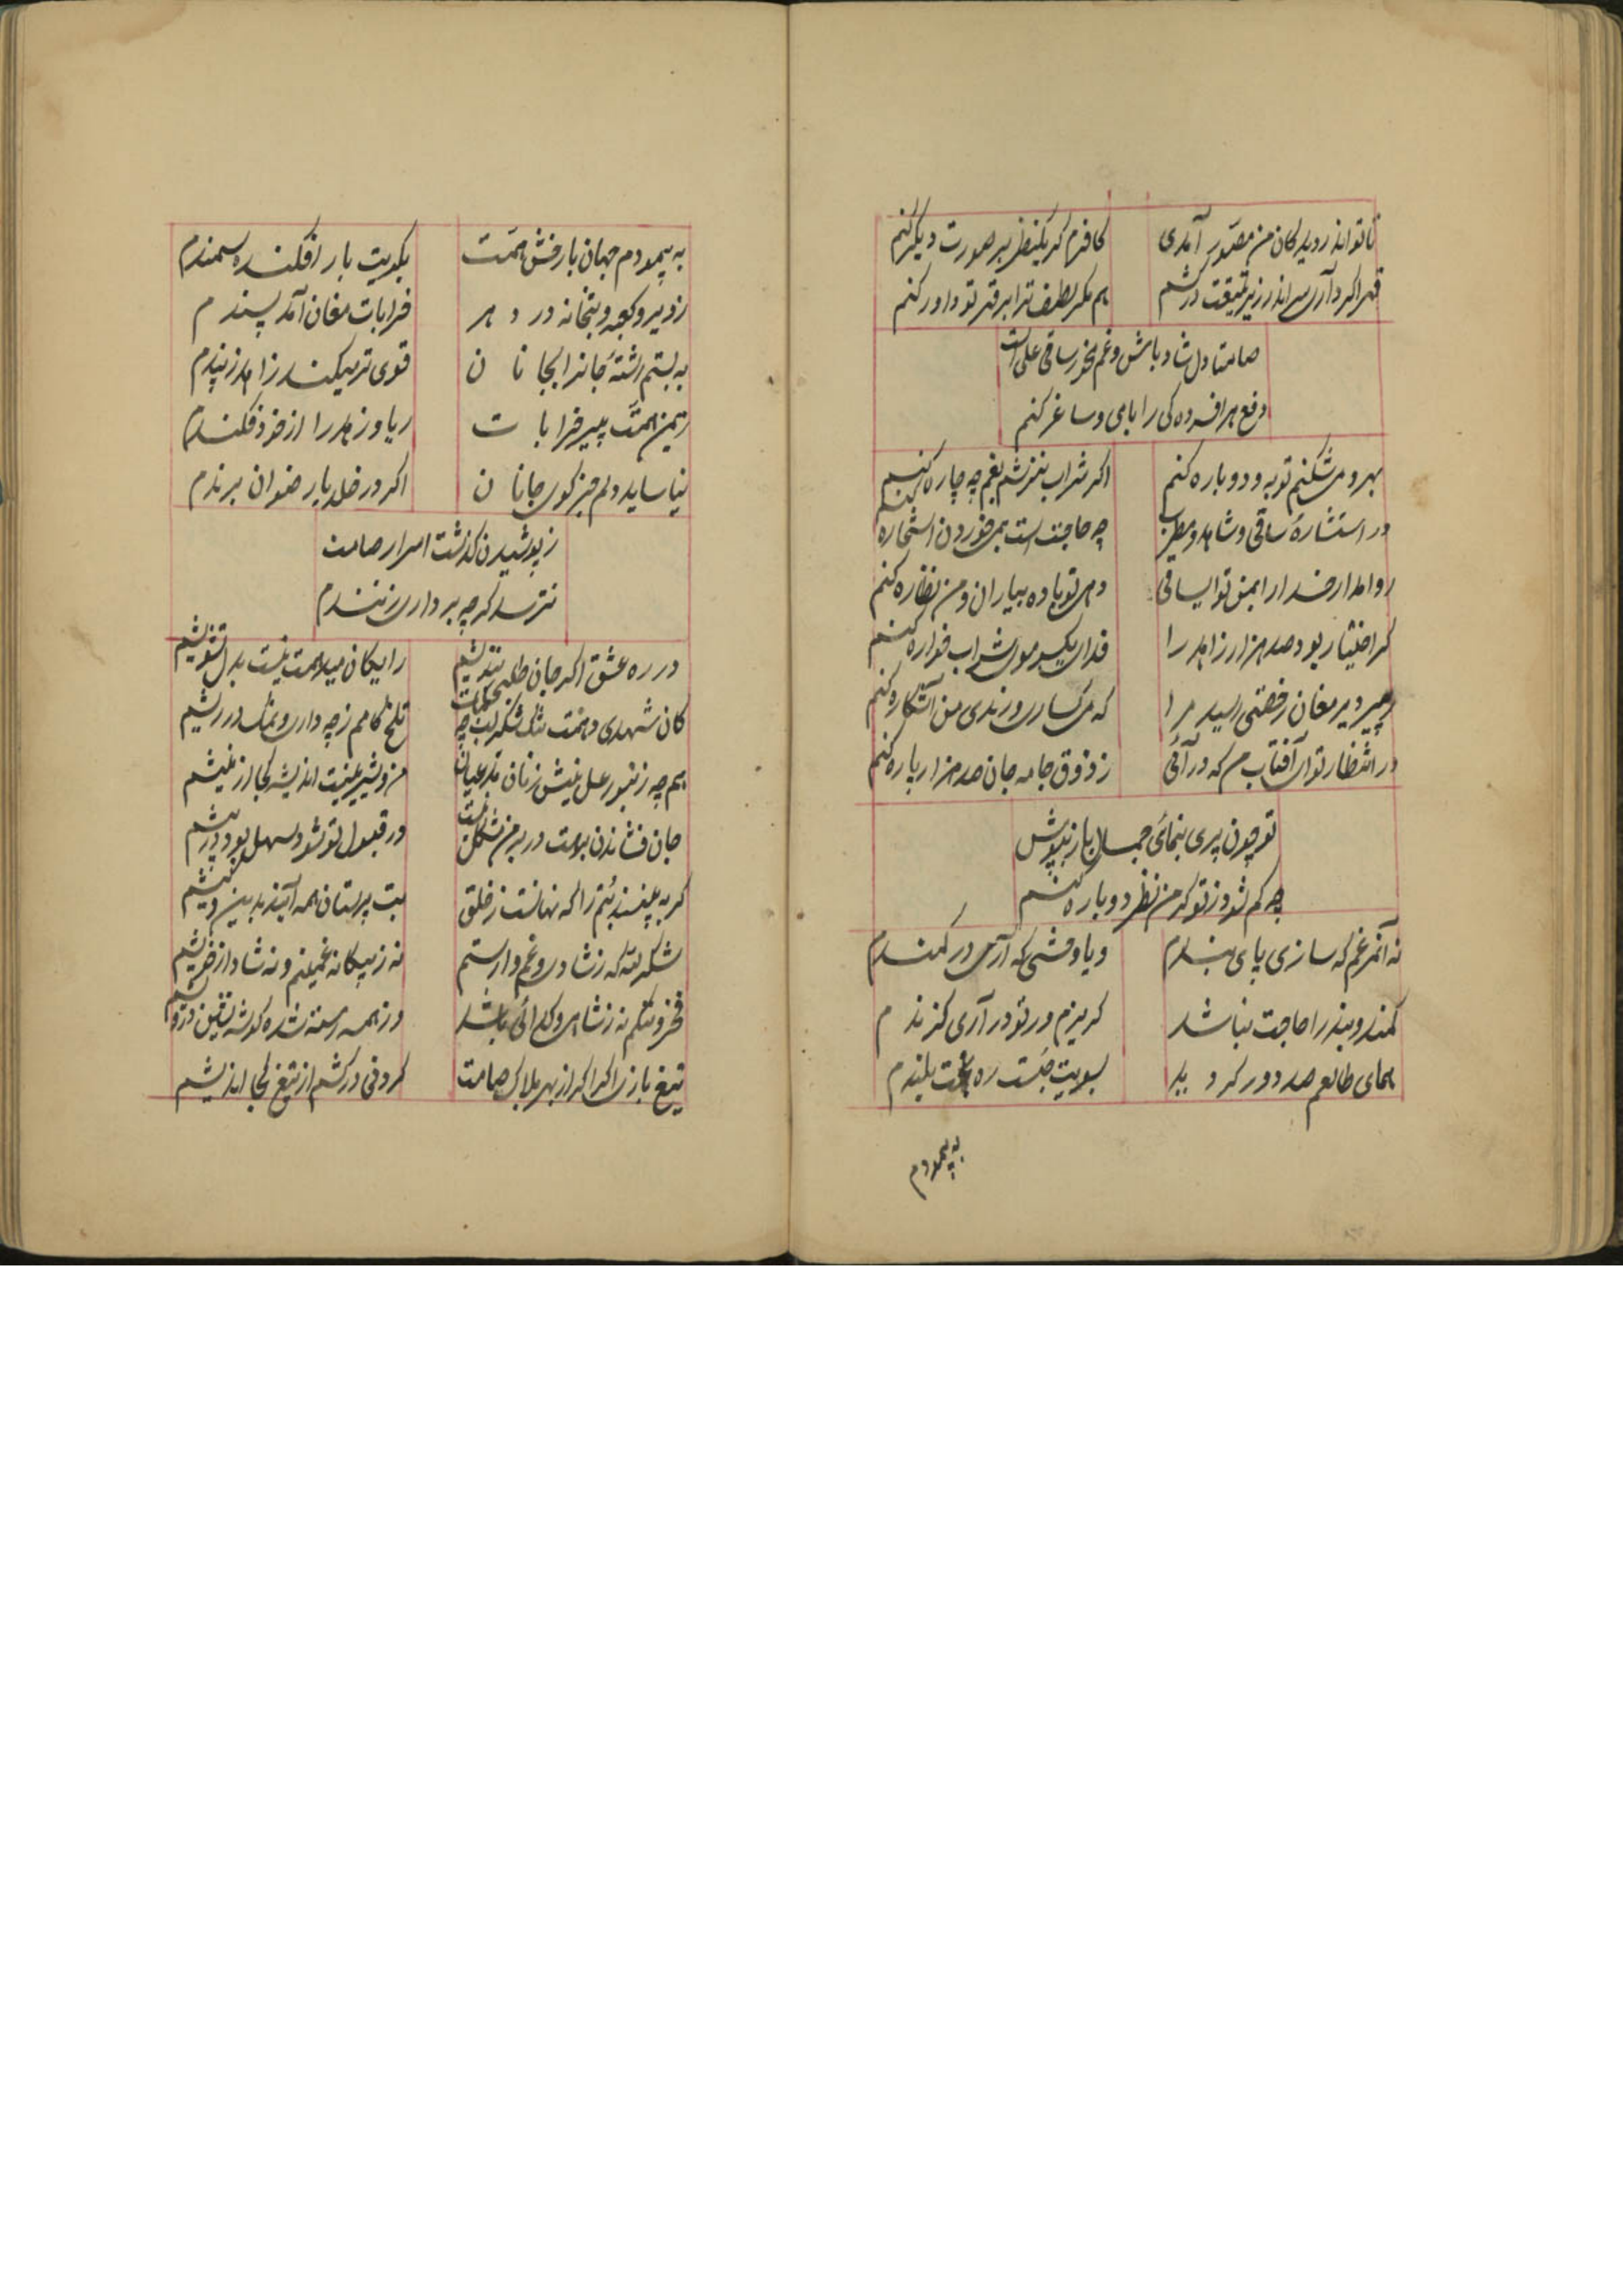 تا تو اندر دیدگان من مصور آمدی کافرم گر یکنظر بر صورت دیگر کنم
قهر اگر داری سر اندر زیر تیغت درکشم هم مگر لطف ترا بر قهر تو داور کنم
صامتا دل شاد باش و غم مخور ساقی علی است
دفع هر افسرده‌گی را با می و ساغر کنم
بهر دو می شکنم توبه و دوباره کنم اگر شراب ننوشم بغم چه چاره کنم
در استشارهٔ ساقی و شاهد و مطرب چه حاجت است بمی خوردن استخاره کنم
روا مدار خدا را بمن تو ایساقی دهی تو باده بیاران و من نظاره کنم
گر اختیار بود صد هزار زاهد را فدای یکسر موی شراب خواره کنم
ز پیر دیر مغان رخصتی رسید مرا که می گساری و رندی من آشکاره کنم
در انتظار تو ای آفتاب من که در آئی ز ذوق جامه جان صد هزار پاره کنم
تو چون پری بنمای جمال باز بپوش
چه کم شود ز تو گر من نظر دوباره کنم
نه آنمرغم که سازی پای بندم و یا وحشی که آری در کمندم
کمند و بند را حاجت نباشد گریزم ور تو در آری گزندم
همای طالعم صد دور گردید بسویت جست ره بخت بلندم
به پیمودم
به پیمودم جهان با رخش همت بکویت بار افکنده سمندم
ز دیر و کعبه و بتخانه در دهر خرابات مغان آمد پسندم
به بستم رشتهٔ جانرا بجانان قوی تر میکند زاهد ز پندم
ز یمن همت پیر خرابات ریا و زهد را از خود فکندم
نیاساید دلم جز کوی جانان اگر در خلد یا رضوان برندم
ز پوشیدن گذشت اسرار صامت
نترسد گرچه بر داری زنندم
در ره عشق اگر جان طلبی نندیشم رایگان میدهمت نیست بدل تشویشم
کان شهدی دهنت تنگ شکر لب چه نبات تلخ کامم ز چه داری و نمک در ریشم
جان فشاندن برهت در بر من مشکل نیست ور قبول تو شود سهل بود در پیشم
گر به بینند بتم را که نهانست ز خلق بت پرستان همه آیند بدین و کیشم
شکر لله که ز شادی و غم وارستم نه ز بیگانه غمینم و نه شاد از خویشم
تیغ بازی اگر اگر از بهر هلاک صامت گردنی درکشم از تیغ کجا اندیشم